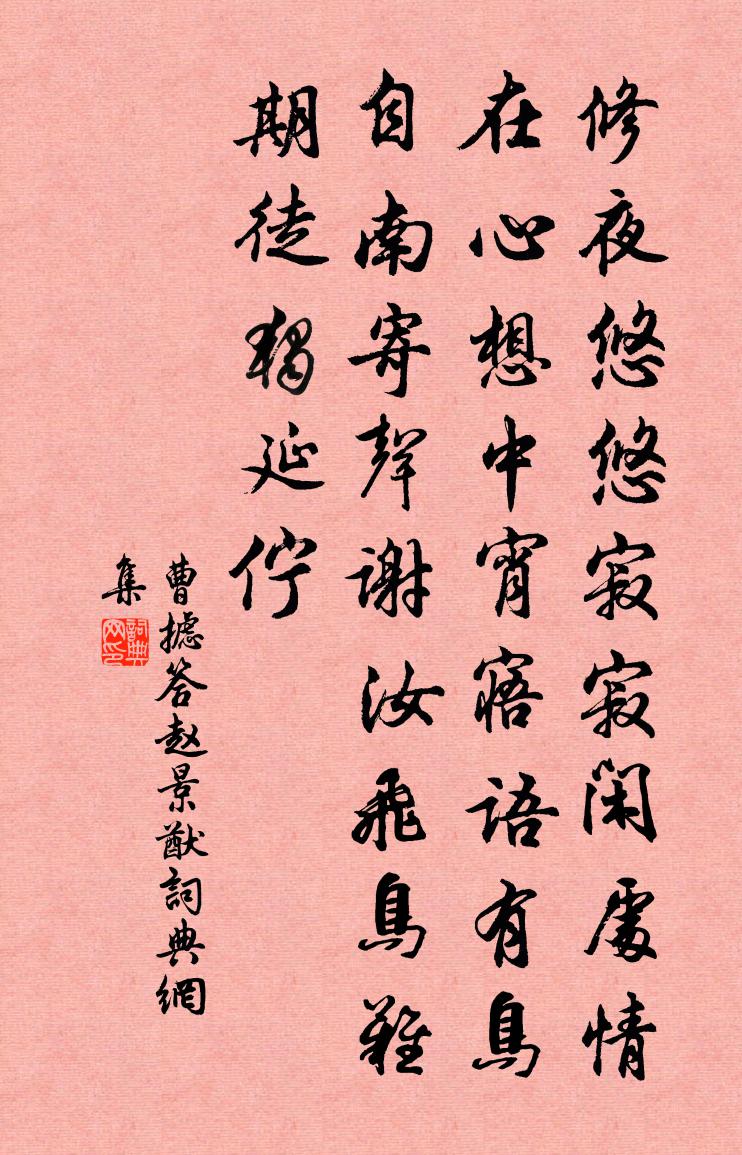 修夜悠悠寂寂閑處情
在心想中宵寤語有鳥
自南寄聲謝汝飛鳥難
期徒獨延佇
曹摅答赵景猷詞典網
集
詞典網印